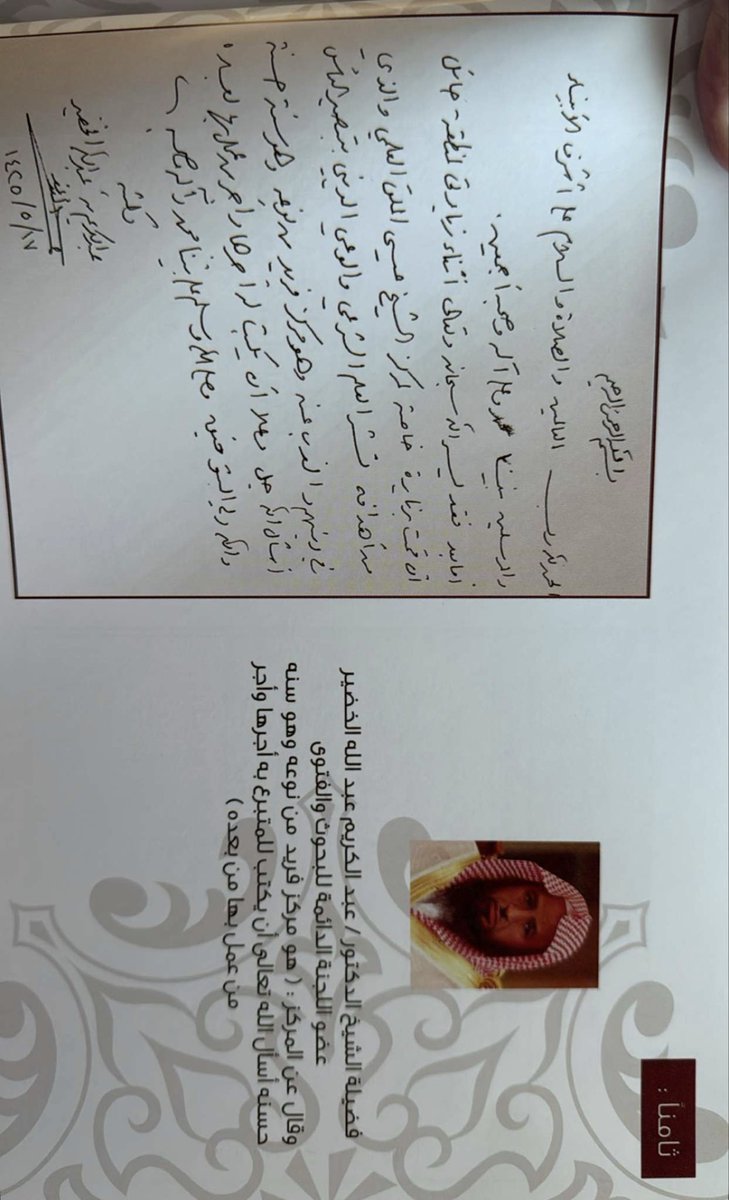 ثامناً :
فضيلة الشيخ الدكتور / عبد الكريم عبد الله الخضير
عضو اللجنة الدائمة للبحوث والفتوى
وقال عن المركز : ( هو مركز فريد من نوعه وهو سنه
حسنه أسأل الله تعالى أن يكتب للمتبرع به أجرها وأجر
من عمل بها من بعده )
بسم الله الرحمن الرحيم
الحمد لله رب العالمين والصلاة والسلام على أشرف الأنبياء
والمرسلين نبينا محمد وعلى آله وصحبه أجمعين
أما بعد فقد يسر الله سبحانه وتعالى أثناء زيارتي لمنطقة
أن قمت بزيارة خاصة لمركز الشيخ العلمي والذي
من أهدافه نشر العلم الشرعي والوعي الديني بتبصير الناس
في دينهم والذب عنه وهو مركز فريد من نوعه وهو سنة حسنة
أسأل الله جل وعلا أن يكتب له أجرها وأجر من عمل بها بعده
والله ولي التوفيق وصلى الله وسلم على نبينا محمد وآله وصحبه
كتبه
عبدالكريم بن عبدالله الخضير
١٤٢٥/٥/١٧